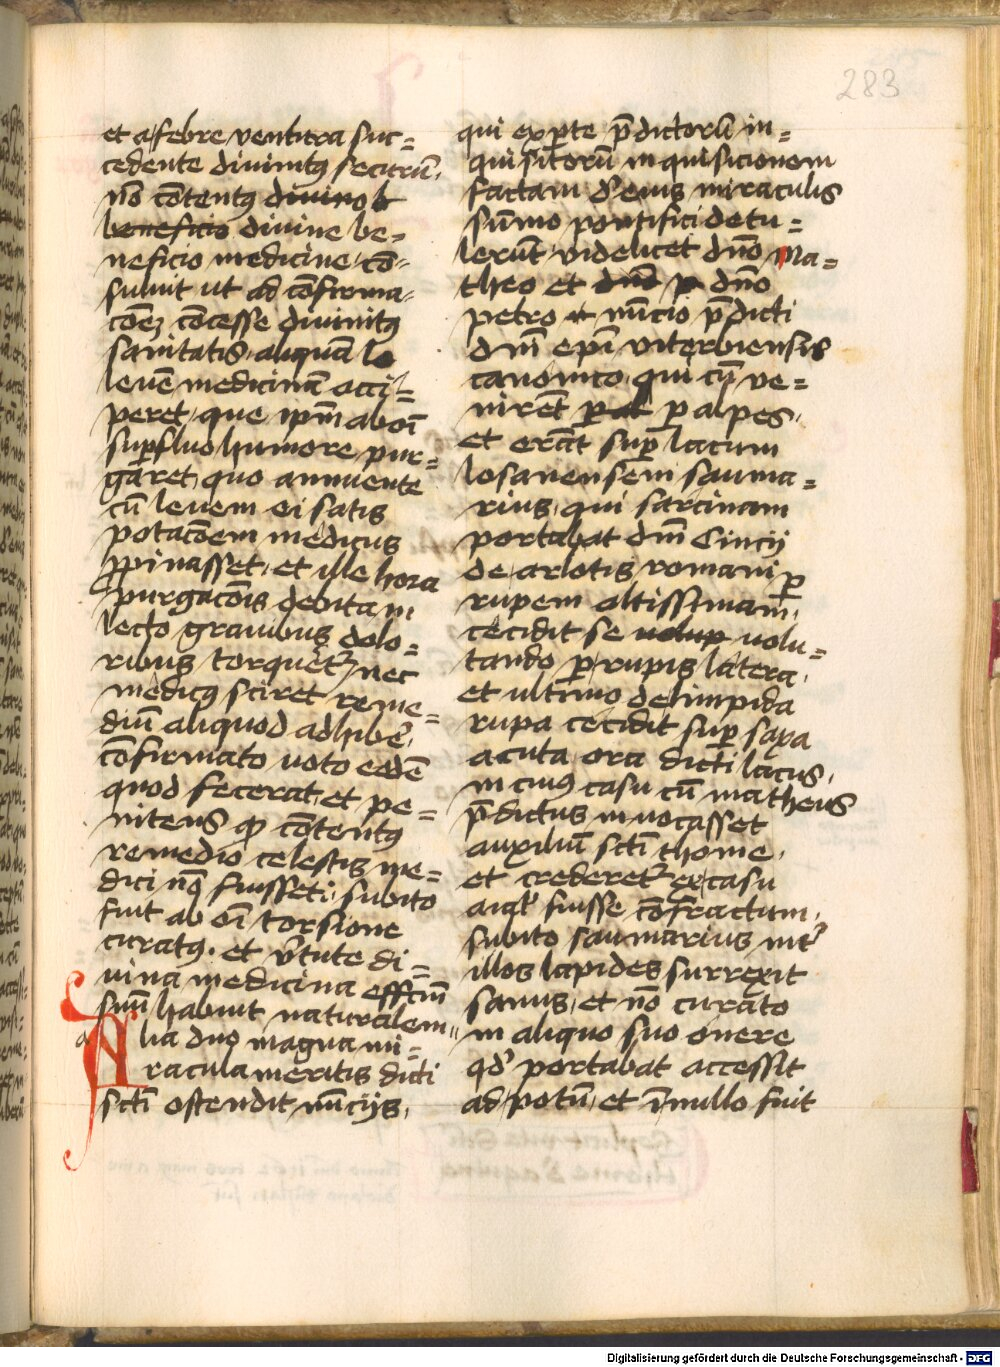 283
et a febre ventura suc=
cedente divinitꝰ securū.
nō cōtentꝰ divino b
beneficio divine be=
neficio medicine, cō=
suluit ut ad cōfirma=
cōeʒ cōcesse divinitꝰ
sanitatis aliquā le
levē medicinā acci=
peret, que ipm̄ ab oī
suꝑfluo humore pur=
garet, quo annuente
cū levem ei satis
potacōem medicus
ꝓpinasset, et ille hora
purgacōis debita in
lecto gravibus dolo=
ribus torqueret᷑, nec
medicꝰ sciret reme=
diū aliquod adhibe᷑,
cōfirmato voto eodē
quod fecerat, et pe=
nitens ꝙ cōtentꝰ
remedio celestis me=
dici nō fuisset, subito
fuit ab oī torsione
curatꝰ. et v̓tute di=
vina medicina effcm̄
suū habuit naturalem
a Alia duo magna mi=
racula meritis dicti
scti ostendit nūcijs,
qui ex ꝑte p̄dictorū in=
quisitorū inquisicionem
factam d' eius miraculis
sūmo pontifici detu=
lerūt, videlicet dn̄o Ma=
theo et dn̄o p dn̄o
petro et nūcio p̄dicti
dn̄i ep̄i viterbiensis
canonico, qui cū ve=
nirēt ꝑ al ꝑ alpes,
et erāt suꝑ lacum
losanensem sauma=
rius, qui sarcinam
portabat dn̄i Cincij
de arlotis romani ꝑ
rupem altissimam,
cecidit se volup volu=
tando ꝑ rupis latera,
et ultimo de limpida
rupa cecidit suꝑ saxa
acuta ora dicti lacus,
in cuiꝰ casu cū matheus
p̄dictus invocasset
auxiliū scti thome,
et crederet᷑ ex casu
aīal fuisse cōfractum,
subito saumarius int᷑
illos lapides surrexit
sanus, et nō curāto
in aliquo suo onere
qd' portabat accessit
ad potū, et ī nullo fuit
Digitalisierung gefördert durch die Deutsche Forschungsgemeinschaft - DFG